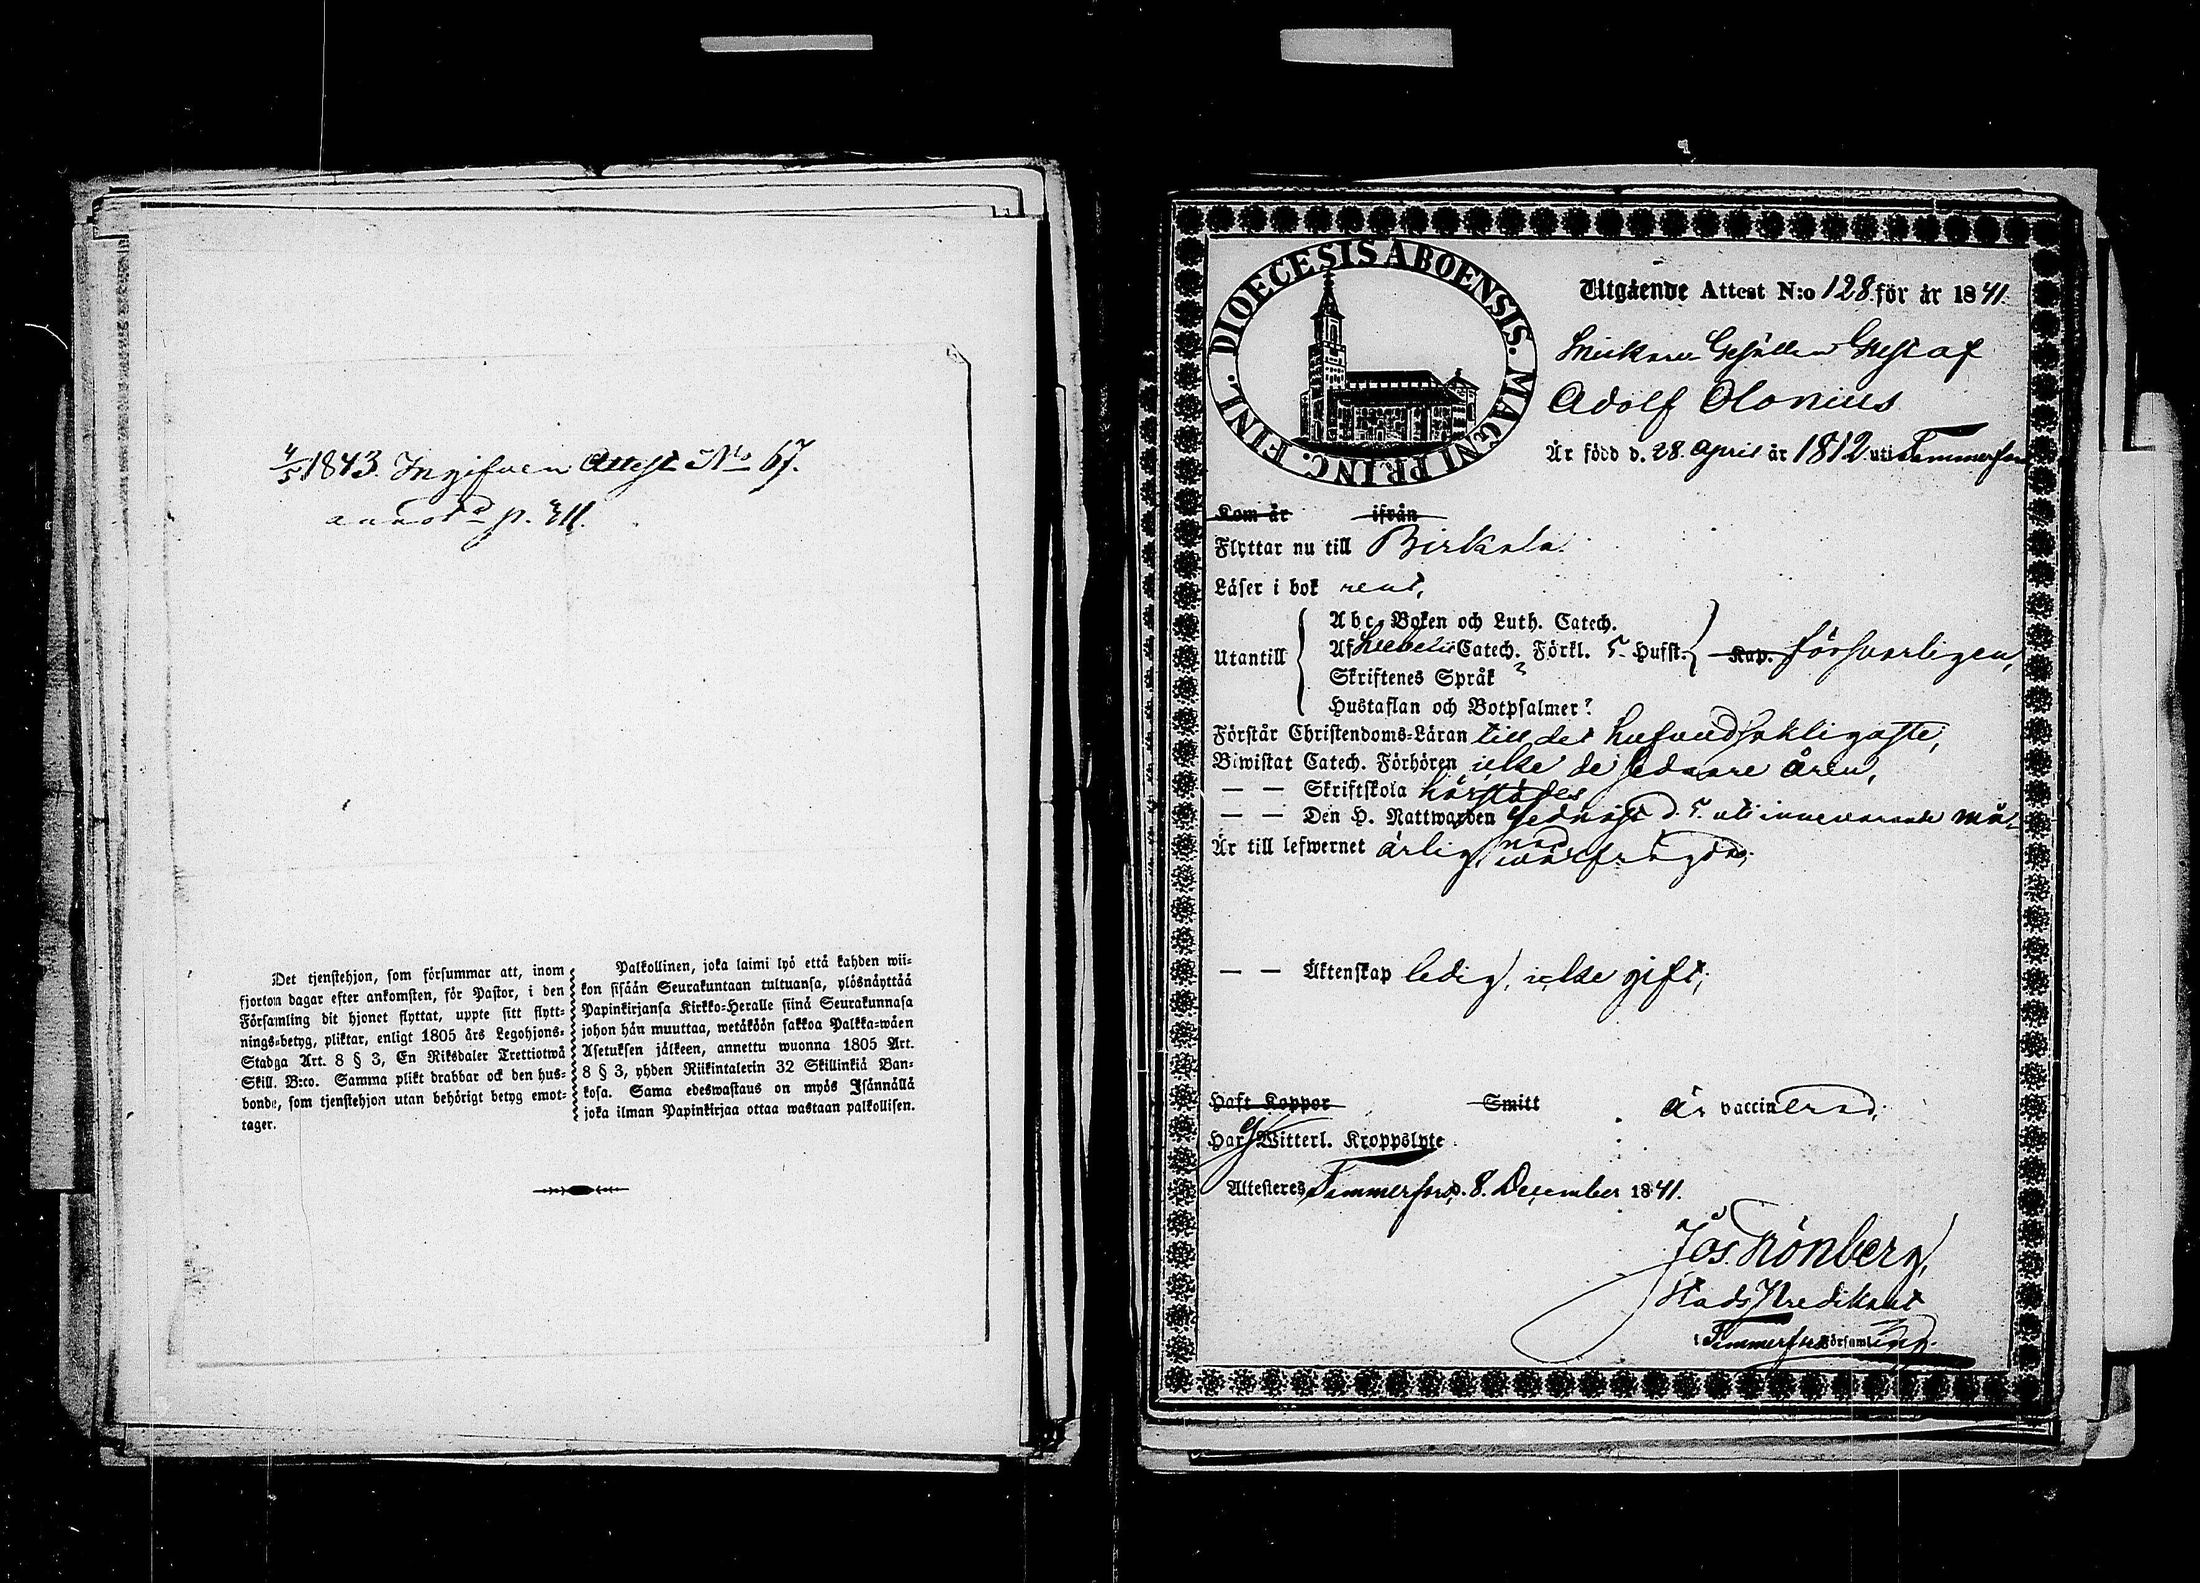 4/5 1843. Ingifven Attest No 67.
annot d p.
Det tjenstehjon, som försummar att, inom
fjorton dagar efter ankomsten, för Pastor, i den
Församling dit hjonet flyttat, uppte sitt flytt-
nings-betyg, pliktar, enligt 1805 års Legohjons-
Stadga Art. 8 § 3, En Riksdaler Trettiotwå
Skill. B:co. Samma plikt drabbar ock den hus-
bonde, som tjenstehjon utan behörigt betyg emot-
tager.
Palkollinen, joka laimi lyö että kahden wii-
kon sisään Seurakuntaan tultuansa, ylösnäyttää
Papinkirjansa Kirkko-Heralle siinä Seurakunnasa
johon hän muuttaa, wetäköön sakkoa Palkka-wäen
Asetuksen jälkeen, annettu wuonna 1805 Art.
8 § 3, yhden Riikintalerin 32 Skillinkiä Ban-
kosa. Sama edeswastaus on myös Isännällä
joka ilman Papinkirjaa ottaa wastaan palkollisen.
DIOECESIS ABOENSIS. MAGNI PRINC. FINL.
Utgående Attest N:o 128 för år 1841.
Snickare Gesällen Gustaf
Adolf Olonius
Är född d. 28 April år 1812 uti Tammerfors
Kom år ifrån
Flyttar nu till Birkala.
Läser i bok rent,
Utantill
Abc-Boken och Luth. Catech.
Af Svebelii Catech. Förkl. 5 Hufst.
Skriftenes Språk ?
Hustaflan och Botpsalmer?
Kap. försvarligen,
Förstår Christendoms-Läran till det hufvudsakligaste,
Biwistat Catech. Förhören icke de sednare åren,
— — Skriftskola härstädes
— — Den H. Nattwarden sednast d. 5. uti innevarande må-
nad
Är till lefwernet ärlig, wälfrägdad;
— — Äktenskap ledig, icke gift;
Haft Koppor Smitt är vaccinerad;
Har ej Witterl. Kroppslyte
Attesteres, Tammerfors, d. 8. December 1841.
Jos. Grönberg,
Stads Predikant
i Tammerfors Församling.